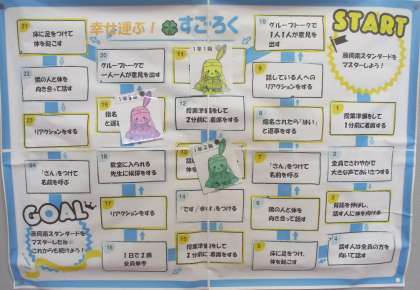 幸せ運ぶ！🍀すごろく
START
藤岡南スタンダードを
マスターしよう！
1
授業準備をして
1分前に着席する
2
全員でさわやかで
大きな声であいさつする
3
背筋を伸ばし、
話す人に体を向ける
4
話す人は全員の方を
向いて話す
5
床に足をつけて
体を起こす
6
隣の人と体を
向き合って話す
7
「さん」をつけて
名前を呼ぶ
8
指名されたら「はい」
と返事をする
9
話している人への
リアクションをする
10
グループトークで
1人1人が意見を出す
11
12
授業準備をして
2分前に着席をする
14
「です」「ます」をつける
15
授業準備をして
2分前に着席
16
1日で2冊
17
リアクションをする
18
教室に入られる
先生に挨拶をする
19
指名
と返
20
グループトークで
一人一人が意見を出す
21
床に足をつけて
体を起こす
22
隣の人と体を
向き合って話す
23
リアクションをする
24
「さん」をつけて
名前を呼ぶ
GOAL
藤岡南スタンダードを
マスターしたね
これからも続けよう！